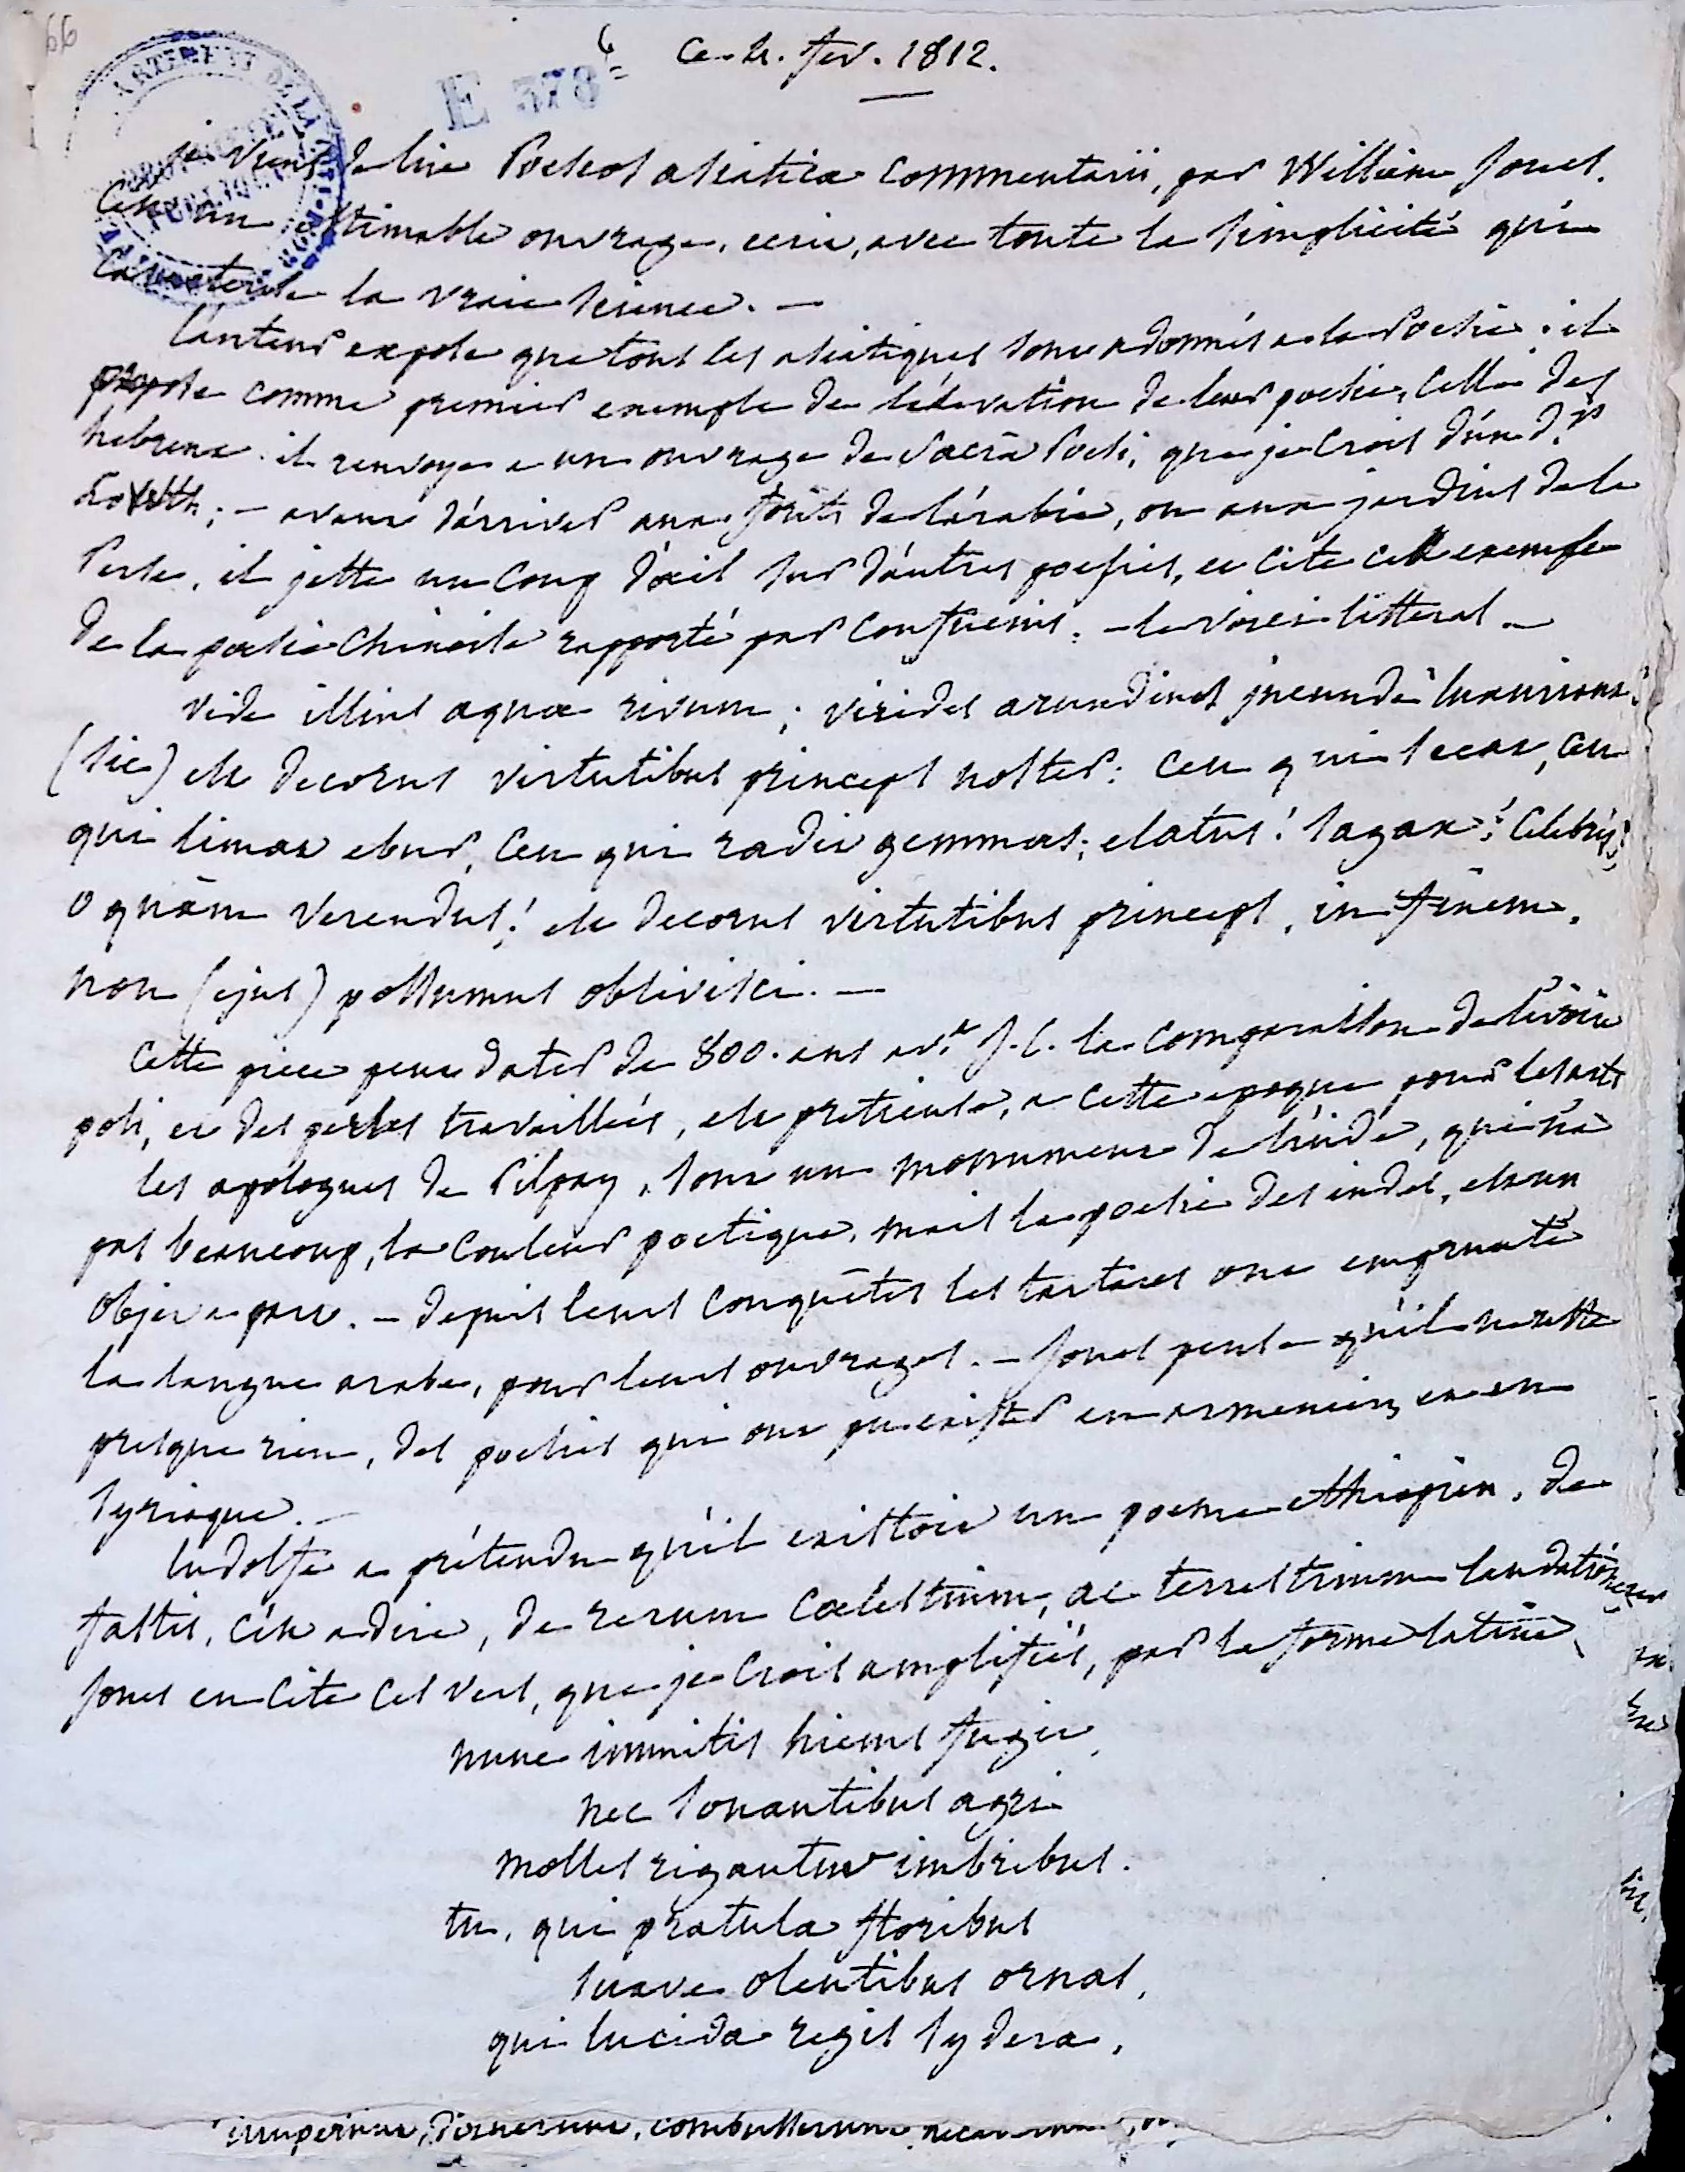 66
E 378
6
Ce 21. fev. 1812.
je viens de lire Poeseos asiaticæ Commentarii, par William Jones.
C'est un estimable ouvrage, ecrit, avec toute la simplicité qui
Caracterise la vraie science. —
l'auteur expose que tous les asiatiques sont adonnés a la Poesie. il
propose comme premier exemple de l'élévation de leur poesie, Celle des
hebreux. il renvoye a un ouvrage de Sacrâ Poesi, que je Crois d'un d.r
Lowth; — avant d'arriver aux forêts de l'arabie, ou aux jardins de la
Perse, il jette un Coup d'œil sur d'autres poesies, et Cite cet exemple
de la poesie Chinoise rapporté par Confucius. — le voici litteral —
vide illius aquæ rivum; virides arundines jucundè luxuriant!
(sic) est decorus virtutibus princeps noster: Ceu qui secat, Ceu
qui limat ebur, Ceu qui radit gemmas; elatus! sagax! Celebris!
o quàm verendus! est decorus virtutibus princeps, in finem.
non (ejus) possumus oblivisci. —
Cette piece peut dater de 800. ans av.t J.C. la Comparaison de l'ivoire
poli, et des perles travaillées, est pretieuse, a Cette epoque pour les arts
les apologues de Pilpay, sont un monument de l'inde, qui n'a
pas beaucoup, la Couleur poetique, mais la poesie des indes, est un
objet a part. — depuis leurs Conquêtes les tartares ont emprunté
la langue arabe, pour leurs ouvrages. — Jones pense qu'il ne reste
presque rien, des poesies qui ont pu exister en armenien, et en
syriaque. —
ludolfe a prétendu qu'il existoit un poeme ethiopien, de
fastis, C'est a dire, de rerum Cœlestium, ac terrestrium laudatione
Jones en Cite Ces vers, que je Crois amplifiés, par la forme latine
nunc immitis hiems fugit,
nec sonantibus agri
molles rigantur imbribus.
tu, qui pratula floribus
suave olentibus ornas,
qui lucida regis sydera,